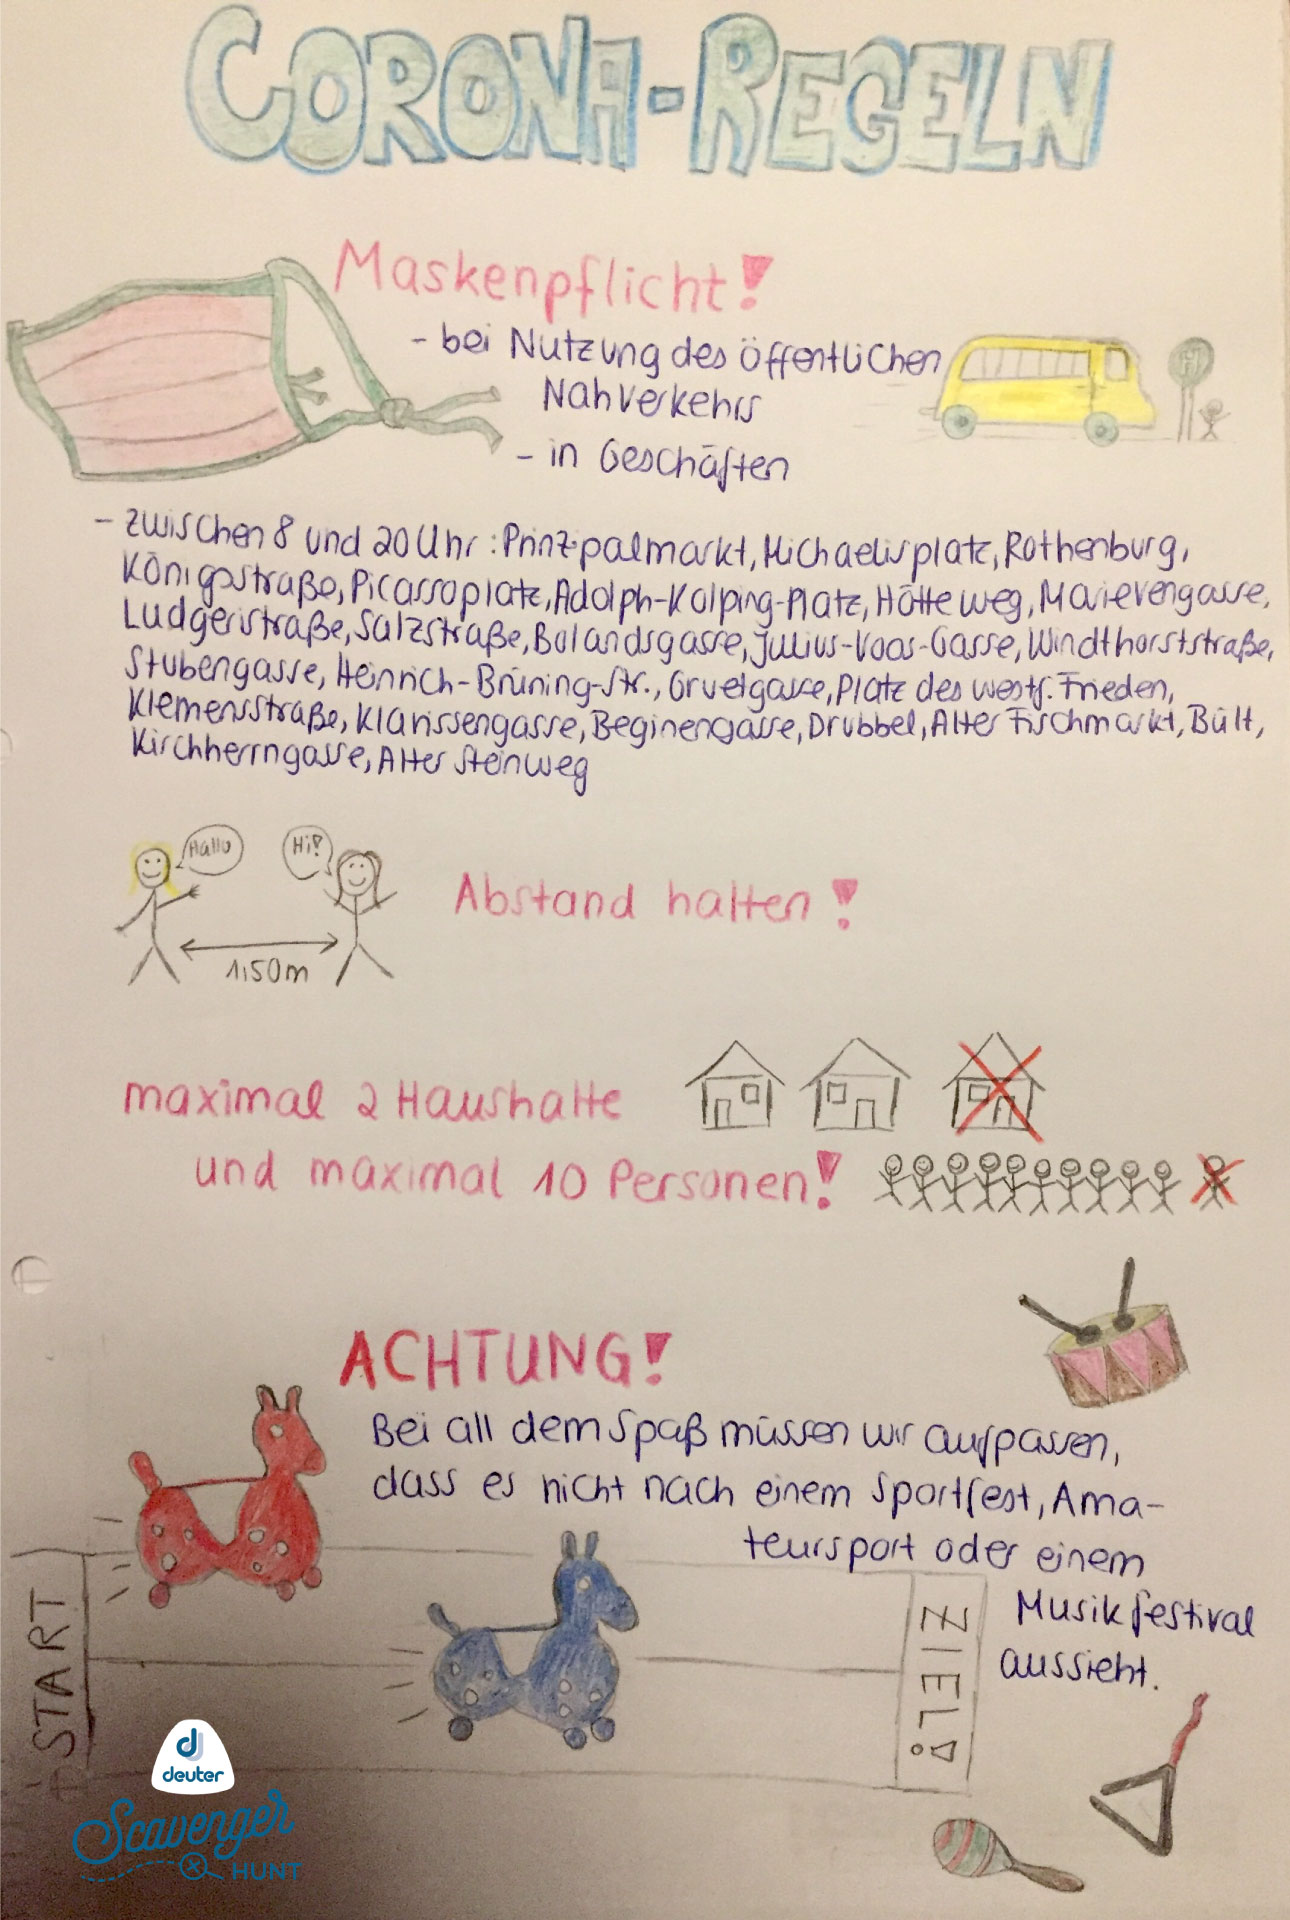 CORONA-REGELN
Maskenpflicht!
- bei Nutzung des öffentlichen
Nahverkehrs
H
- in Geschäften
- zwischen 8 und 20 Uhr: Prinzipalmarkt, Michaelisplatz, Rothenburg,
Königsstraße, Picassoplatz, Adolph-Kolping-Platz, Hötteweg, Marievengasse,
Ludgeristraße, Salzstraße, Bolandsgasse, Julius-Voos-Gasse, Windthorststraße,
Stubengasse, Heinrich-Brüning-Str., Gruetgasse, Platz des westf. Frieden,
Klemensstraße, Klarissengasse, Beginengasse, Drubbel, Alter Fischmarkt, Bült,
Kirchherrngasse, Alter Steinweg
Hallo
Hi!
Abstand halten!
1,50m
maximal 2 Haushalte
und maximal 10 Personen!
ACHTUNG!
Bei all dem Spaß müssen wir aufpassen,
dass es nicht nach einem Sportfest, Ama-
teursport oder einem
Musikfestival
aussieht.
START
ZIEL!
deuter
Scavenger
HUNT